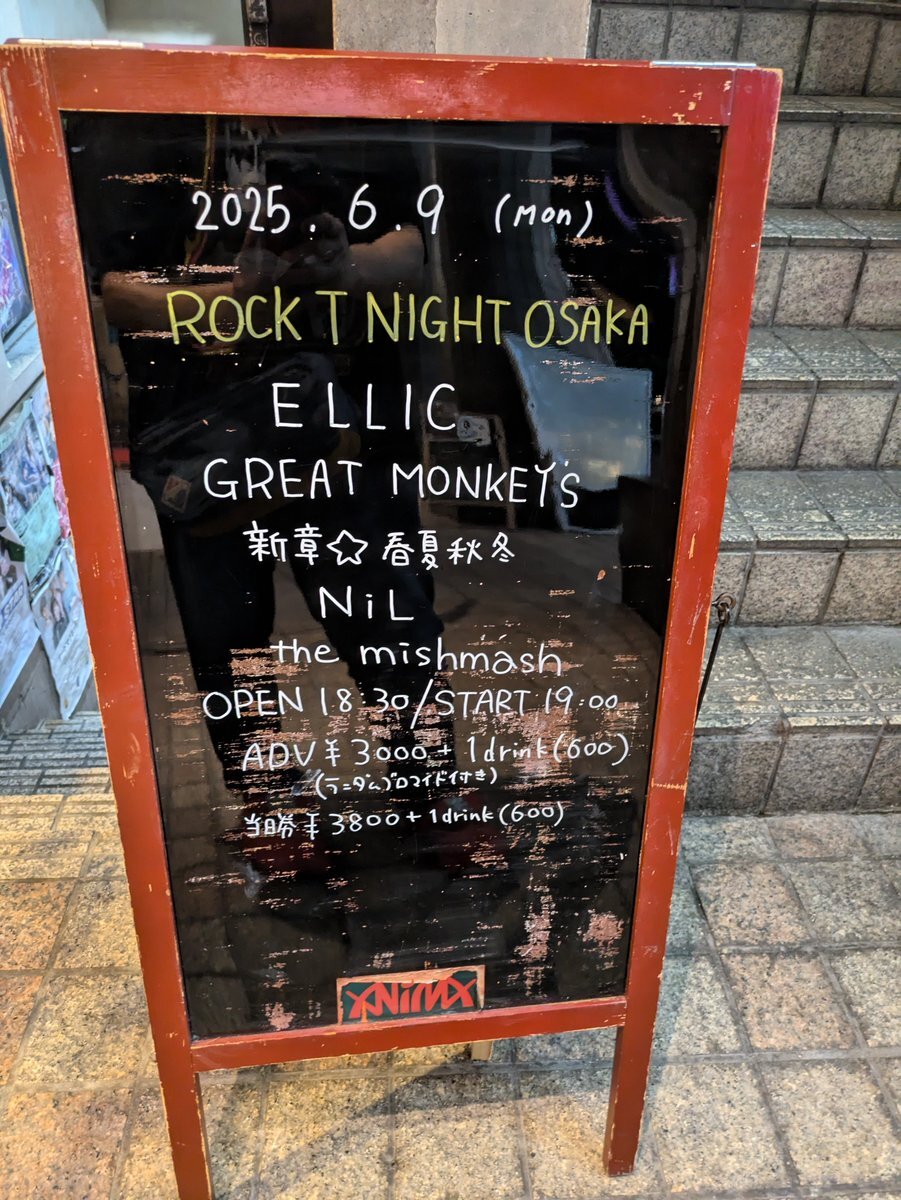 2025.6.9 (Mon)
ROCK T NIGHT OSAKA
ELLIC
GREAT MONKEY'S
新章☆春夏秋冬
NiL
the mishmash
OPEN 18:30/START 19:00
ADV ¥3000+1drink(600)
(ランダムブロマイド付き)
当日券 ¥3800+1drink(600)
ANiMA